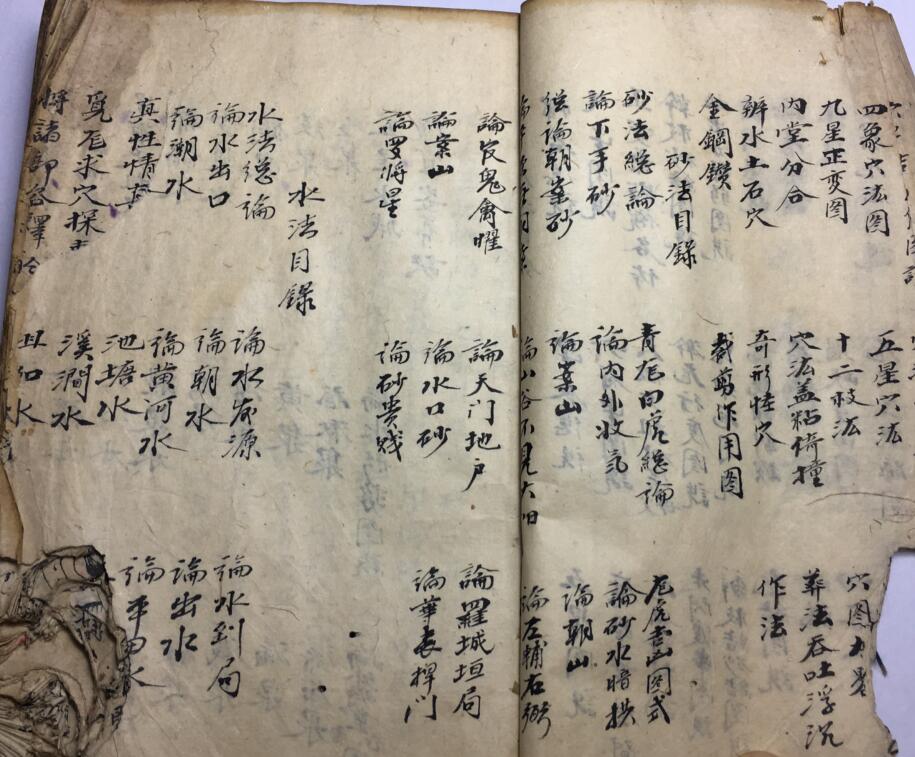 四象穴法图 五星穴法 穴图
九星正变图 十二杖法 葬法吞吐浮沉
内堂分合 穴法盖粘倚撞 作法
辨水土石穴 奇形怪穴
金鋼鑽 裁剪作用图
砂法目錄
砂法總論 青龙白虎總論 龙虎吉凶图式
論下手砂 論内外收气 論砂水暗拱
總論朝案砂 論案山 論朝山
論山谷不見大 論左輔右弼
論官鬼禽曜 論天门地戶 論羅城垣局
論案山 論水口砂 論華表捍门
論罗将星 論砂貴賎
水法目錄
水法總論 論水来源 論水到局
論水出口 論朝水 論出水
論潮水 論黄河水 論平田水
真性情 池塘水
覓龙求穴探 溪澗水
将諸 水